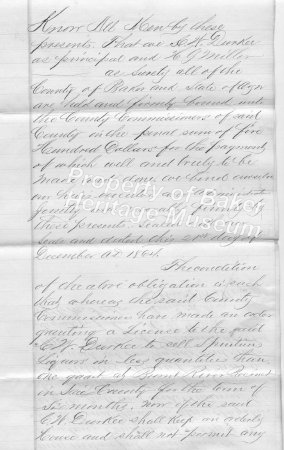 Know All Men by these
presents. That we C W Durkee
as principal and H J Miller
as surety all of the
County of Baker and state of Ogn
are held and firmly bound unto
the County Commissioners of said
County in the penal sum of five
Hundred Dollars for the payment
of which well and truly to be
made and done we bind ourselves
our heirs executors and administrators
jointly and severally firmly by
these presents. Sealed with our
Seals and dated this 21st day of
December AD 1864
The condition
of the above obligation is such
that whereas the said County
Commissioners have made an order
granting a License to the said
C W Durkee to sell Spiritous
Liquors in less quantities than
one quart at Burnt River
in Said County for the term of
Six months, now if the said
C W Durkee shall keep an orderly
House and shall not permit any
Property of Baker
Heritage Museum